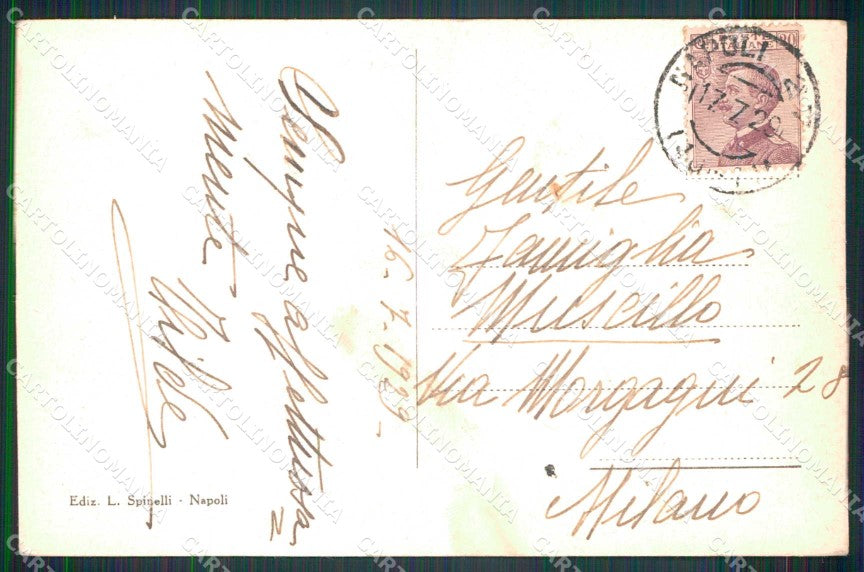 Sempre affettuosa=
mente
16. 7. 1929-
Gentile
Famiglia
Muscillo
Via Morgagni 28
Milano
NAPOLI
17.7.29
Ediz. L. Spinelli - Napoli
CARTOLINOMANIA